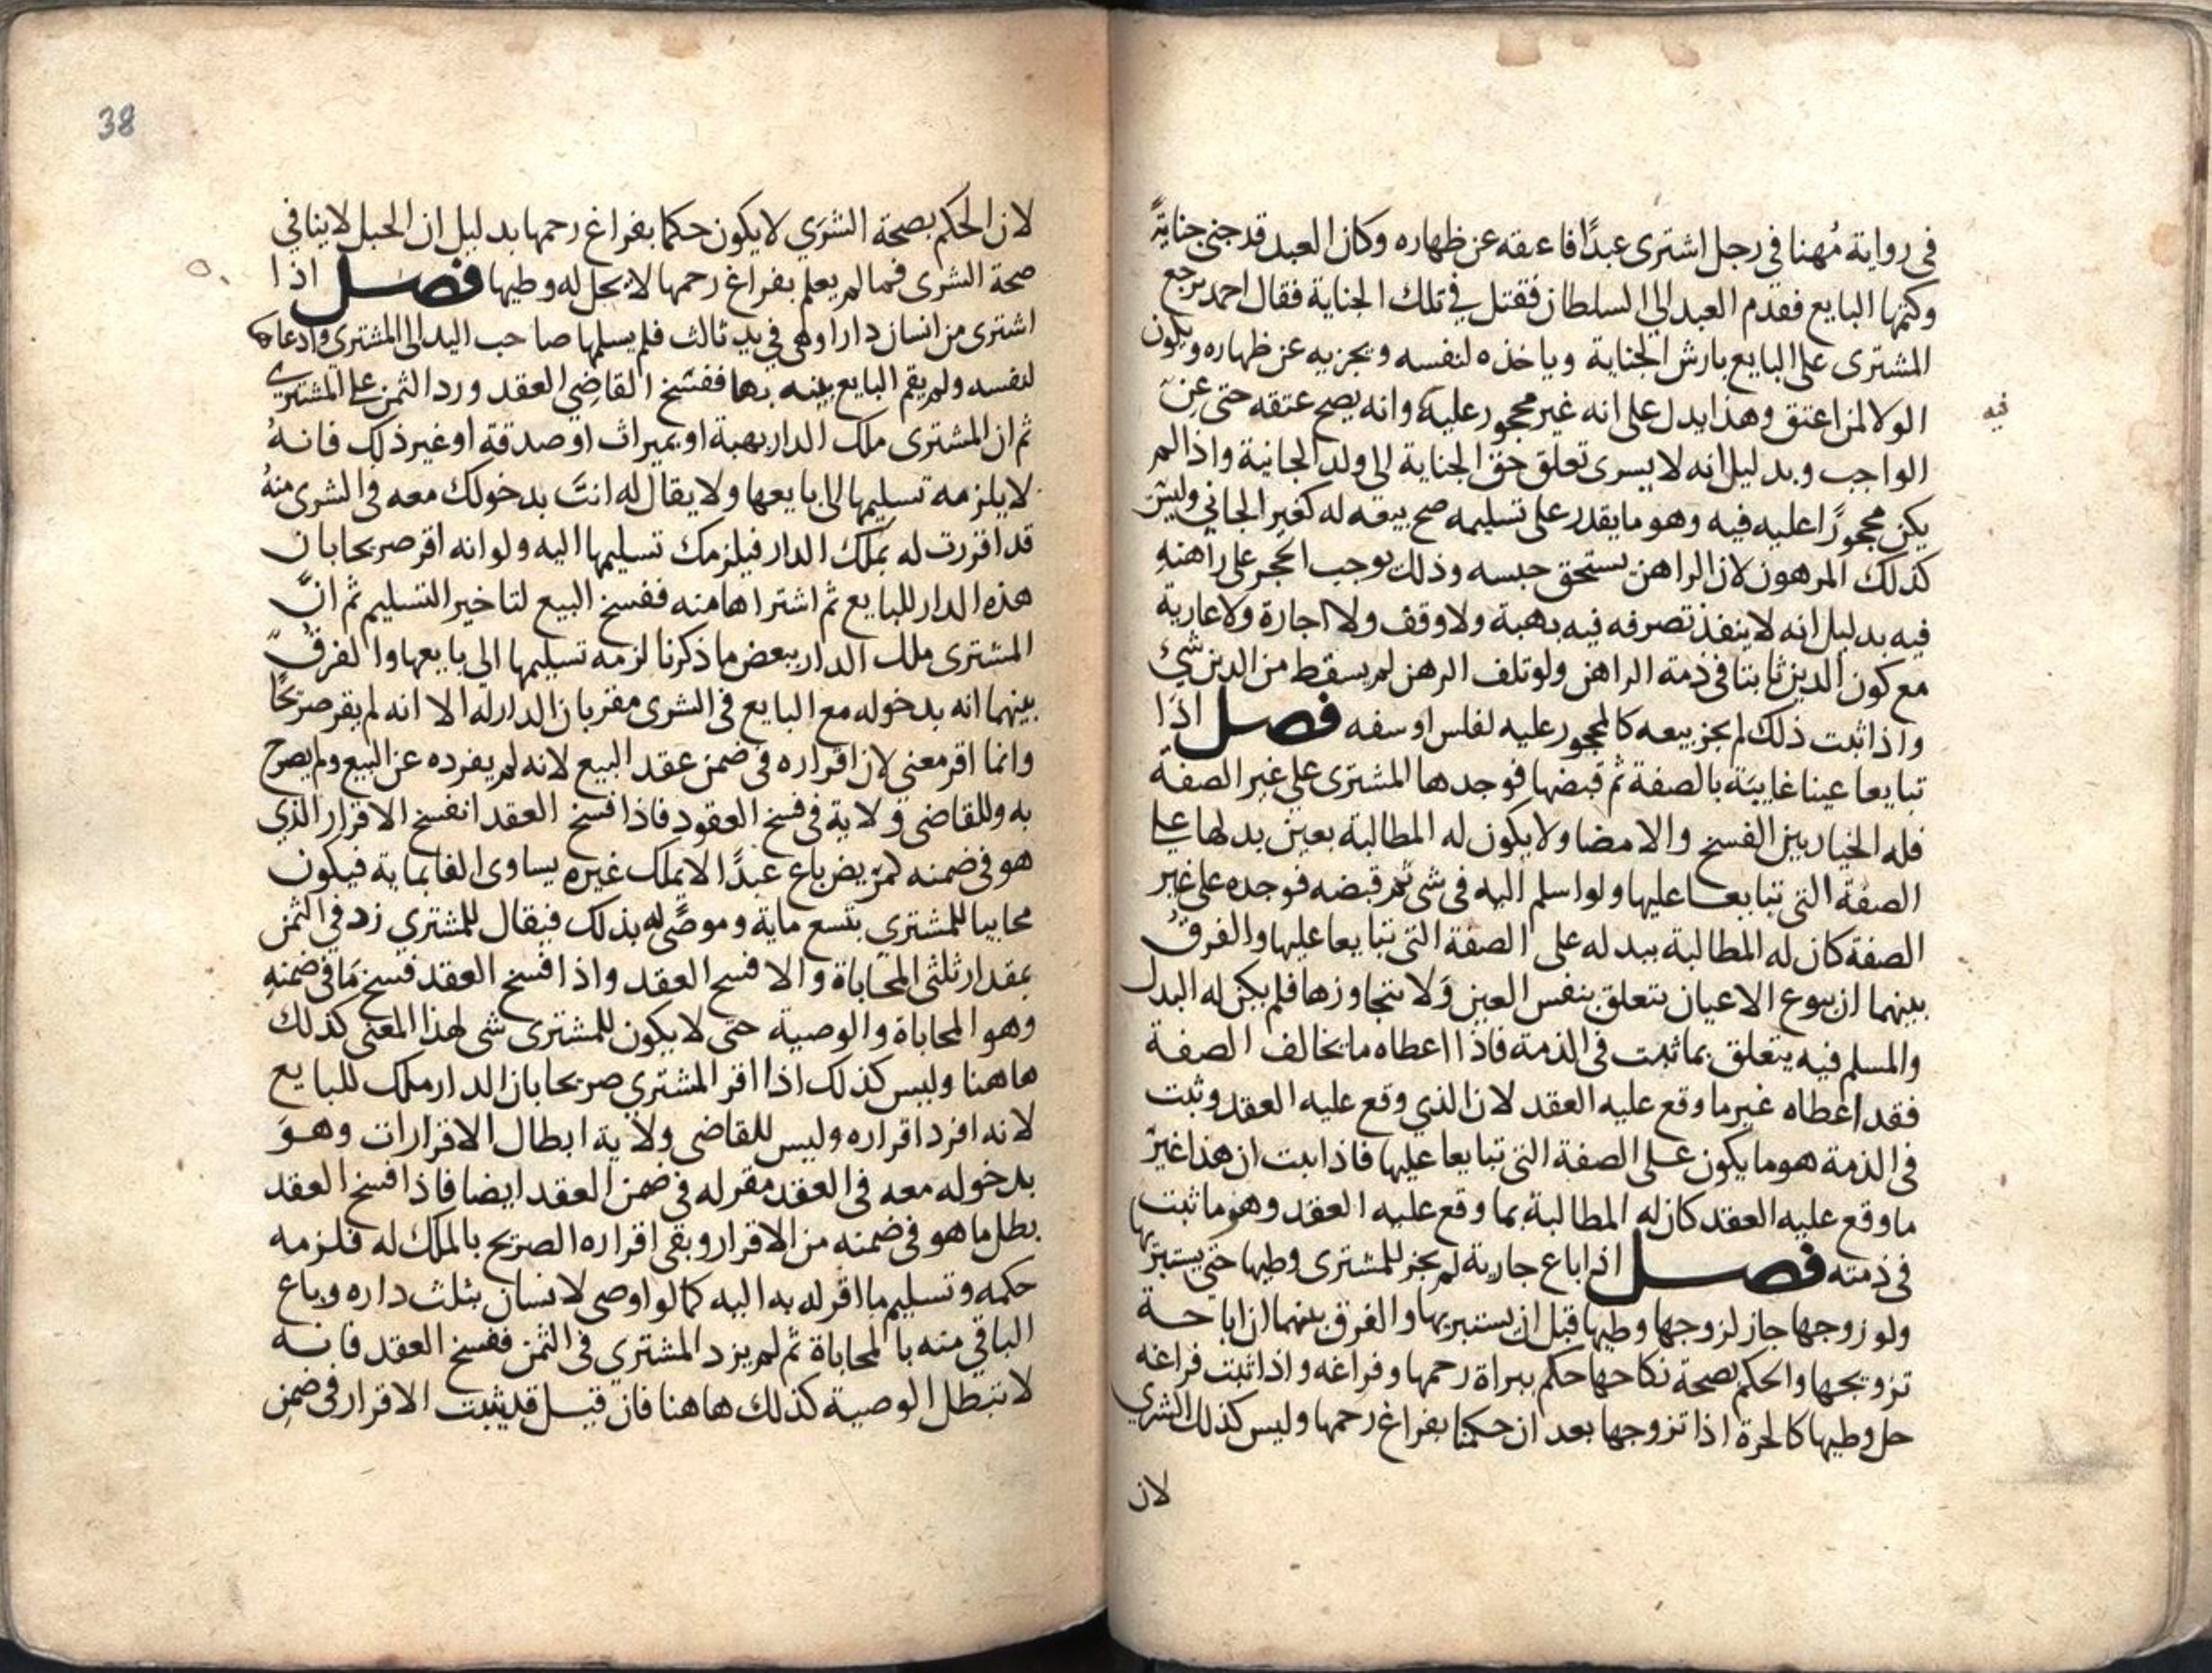 فى رواية مُهنا في رجل اشترى عبدًا فاعتقه عن ظهاره وكان العبد قد جنى جنايةً
وكتمها البايع فقدم العبد الى السلطان فقتل في تلك الجناية فقال احمد يرجع
المشترى على البايع بارش الجناية وياخذه لنفسه ويجزيه عن ظهاره ويكون
الولا لمن اعتق وهذا يدل على انه غير محجور عليه وانه يصح عتقه حتى عن
فيه
الواجب وبدليل انه لا يسرى تعلق حق الجناية الى ولد الجانية واذا لم
يكن محجورًا عليه فيه وهو ما يقدر على تسليمه صح بيعه له كغير الجاني وليس
كذلك المرهون لان الراهن يستحق حبسه وذلك يوجب الحجر على راهنه
فيه بدليل انه لا ينفذ تصرفه فيه بهبة ولا وقف ولا اجارة ولا عارية
مع كون الدين ثابتا فى ذمة الراهن ولو تلف الرهن لم يسقط من الدين شئ
واذا ثبت ذلك لم يجز بيعه كالمحجور عليه لفلس او سفه فصل اذا
تبايعا عينا غايبة بالصفة ثم قبضها فوجدها المشترى على غير الصفة
فله الخيار بين الفسخ والامضا ولا يكون له المطالبة بعين بدلها على
الصفة التى تبايعا عليها ولو اسلم اليه فى شى ثم قبضه فوجده على غير
الصفة كان له المطالبة ببدله على الصفة التى تبايعا عليها والفرق
بينهما ان بيوع الاعيان يتعلق بنفس العين ولا يتجاوزها فلم يكن له البدل
والمسلم فيه يتعلق بما ثبت فى الذمة فاذا اعطاه ما يخالف الصفة
فقد اعطاه غير ما وقع عليه العقد لان الذي وقع عليه العقد وثبت
فى الذمة هو ما يكون على الصفة التى تبايعا عليها فاذا ثبت ان هذا غير
ما وقع عليه العقد كان له المطالبة بما وقع عليه العقد وهو ما ثبت
فى ذمته فصل اذا باع جارية لم يجز للمشترى وطيها حتى يستبريها
ولو زوجها جاز لزوجها وطيها قبل ان يستبريها والفرق بينهما ان اباحة
تزويجها والحكم بصحة نكاحها حكم ببراة رحمها وفراغه واذا ثبت فراغه
حل وطيها كالحرة اذا تزوجها بعد ان حكمنا بفراغ رحمها وليس كذلك الشرى
لان
38
لان الحكم بصحة الشرى لا يكون حكما بفراغ رحمها بدليل ان الحبل لا ينافي
صحة الشرى فما لم يعلم بفراغ رحمها لا يحل له وطيها فصل اذا
اشترى من انسان دارا وهى في يد ثالث فلم يسلمها صاحب اليد الى المشترى وادعاها
لنفسه ولم يقم البايع بينه بها ففسخ القاضي العقد ورد الثمن على المشترى
ثم ان المشترى ملك الدار بهبة او بميراث او صدقة او غير ذلك فانه
لا يلزمه تسليمها الى بايعها ولا يقال له انت بدخولك معه فى الشرى منه
قد اقررت له بملك الدار فيلزمك تسليمها اليه ولو انه اقر صريحا بان
هذه الدار للبايع ثم اشتراها منه ففسخ البيع لتاخير التسليم ثم ان
المشترى ملك الدار ببعض ما ذكرنا لزمه تسليمها الى بايعها والفرق
بينهما انه بدخوله مع البايع فى الشرى مقر بان الدار له الا انه لم يقر صريحًا
وانما اقر معنى لان اقراره فى ضمن عقد البيع لانه لم يفرده عن البيع ولم يصرح
به وللقاضى ولاية فى فسخ العقود فاذا فسخ العقد انفسخ الاقرار الذي
هو فى ضمنه كمريض باع عبدًا لا يملك غيره يساوى الفا بماية فيكون
محابيا للمشترى بتسع ماية وموصًى له بذلك فيقال للمشتري زد في الثمن
بمقدار ثلثى المحاباة والا فسخ العقد واذا فسخ العقد فسخ ما فى ضمنه
وهو المحاباة والوصية حتى لا يكون للمشترى شى لهذا المعنى كذلك
هاهنا وليس كذلك اذا اقر المشترى صريحا بان الدار ملك للبايع
لانه افرد اقراره وليس للقاضى ولاية ابطال الاقرارات وهو
بدخوله معه فى العقد مقر له فى ضمن العقد ايضا فاذا فسخ العقد
بطل ما هو فى ضمنه من الاقرار وبقى اقراره الصريح بالملك له فلزمه
حكمه وتسليم ما اقر له به اليه كما لو اوصى لانسان بثلث داره وباع
الباقي منه بالمحاباة ثم لم يزد المشتري فى الثمن ففسخ العقد فانه
لا تبطل الوصية كذلك هاهنا فان قيل قد يثبت الاقرار فى ضمن